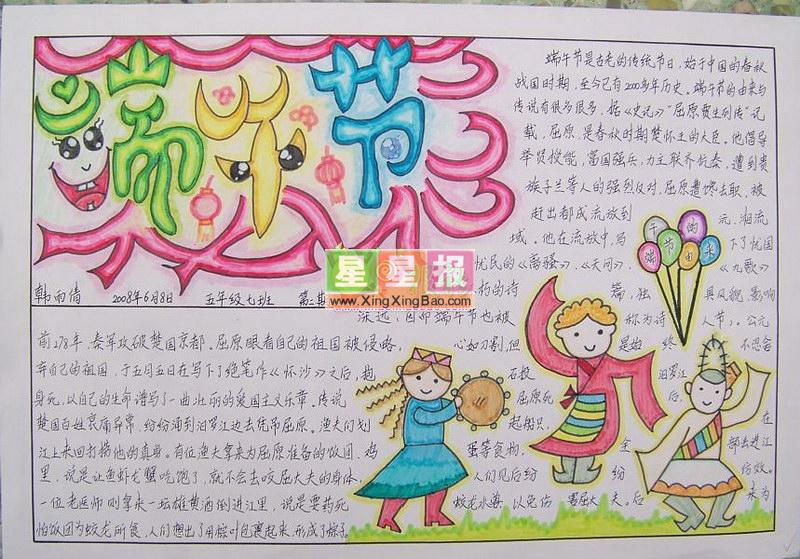 端午节
端午节是古老的传统节日，始于中国的春秋
战国时期，至今已有2000多年历史。端午节的由来与
传说有很多很多，据《史记》“屈原贾生列传”记
载，屈原，是春秋时期楚怀王的大臣。他倡导
举贤授能，富国强兵，力主联齐抗秦，遭到贵
族子兰等人的强烈反对，屈原遭馋去职，被
赶出都成流放到 元、湘流
域。他在流放中，写 下了忧国
忧民的《离骚》、《天问》、 《九歌》
朽的诗 篇，独 具风貌，影响
深远，因而端午节也被 称为诗 人节。公元
午 的
端 节 由 来
星星报
www.XingXingBao.com
韩雨倩 2008年6月8日 五年级七班 第二期
前278年，秦军攻破楚国京都，屈原眼看自己的祖国被侵略， 心如刀割，但 是始 终 不忍舍
弃自己的祖国，于五月五日在写下了绝笔作《怀沙》之后，抱 石投 汨罗江
身死，以自己的生命谱写了一曲壮丽的爱国主义乐章。传说 屈原死 后，
楚国百姓哀痛异常，纷纷涌到汨罗江边去凭吊屈原。渔夫们划 起船只， 在
江上来回打捞他的真身。有位渔夫拿来为屈原准备的饭团、鸡 蛋等食物， 全 部丢进江
里，说是让鱼虾龙蟹吃饱了，就不会去咬屈大夫的身体， 人们见后纷 纷 仿效。
一位老医师则拿来一坛雄黄酒倒进江里，说是要药死 蛟龙水兽，以免伤 害屈大 夫。后 来为
怕饭团为蛟龙所食，人们想出了用棕叶包裹起来，形成了棕子。